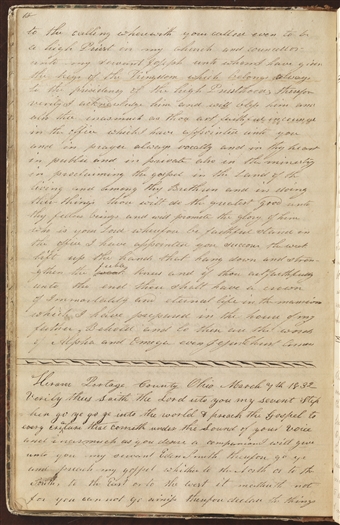 to the calling wherewith your callow even to be
a high Priest in my church and councellor
unto my servant Joseph unto whom I have given
the keys of the Kingdom which belongs always
to the presidency of the high Priesthood therefore
verily I acknowledge him and will bless him and
also thee inasmuch as thou art faithful in council
in the office which I have appointed unto you
and in prayer always vocally and in thy heart
in public and in private also in the ministry
in proclaiming the gospel in the land of the
living and among thy Brethren and in doing
these things thou will do the greatest good unto
thy fellow beings and will promote the glory of him
who is your Lord wherefore be faithful stand in
the office I have appointed you succour the weak
lift up the hands that hang down and stren
gthen the feeble knees and if thou art faithful
unto the end thou shall have a crown
of Immortality and eternal life in the mansions
which I have prepared in the house of my
father Behold and lo these are the words
of Alpha and Omega even Jesus Christ Amen
Hiram Portage County Ohio March 7th 1832
Verily thus saith the Lord unto you my servent Step
hen go ye go ye into the world & preach the Gospel to
every creature that cometh under the Sound of your Voice
and inasmuch as you desire a companion I will give
unto you my servant Eden Smith therefore go ye
and preach my gospel whither to the North or to the
South to the East or to the west it mattereth not
for you can not go amiss therefore declare the things